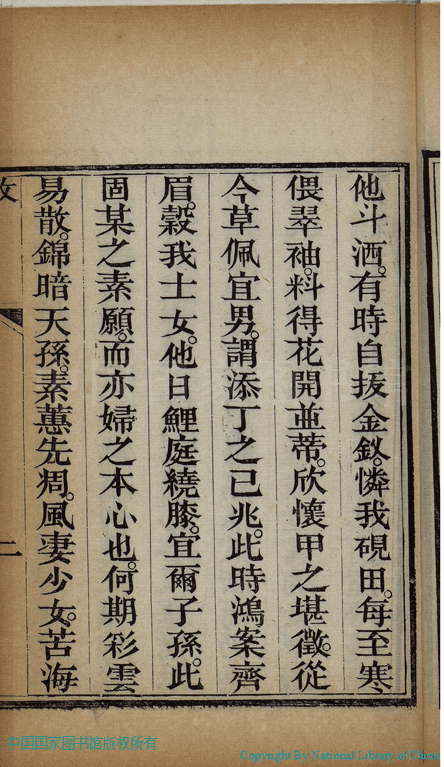 他斗洒。有時自抜金釵。憐我硯田。每至寒
偎翠袖。料得花開並蒂。欣懷甲之堪徵。從
今草佩宜男。謂添丁之已兆。此時鴻案齊
眉。穀我士女。他日鯉庭繞膝。宜爾子孫。此
固某之素願。而亦婦之本心也。何期彩雲
易散。錦暗天孫。素蕙先凋。風妻少女。苦海
二
中国国家图书馆版权所有
Copyright By National Library of China